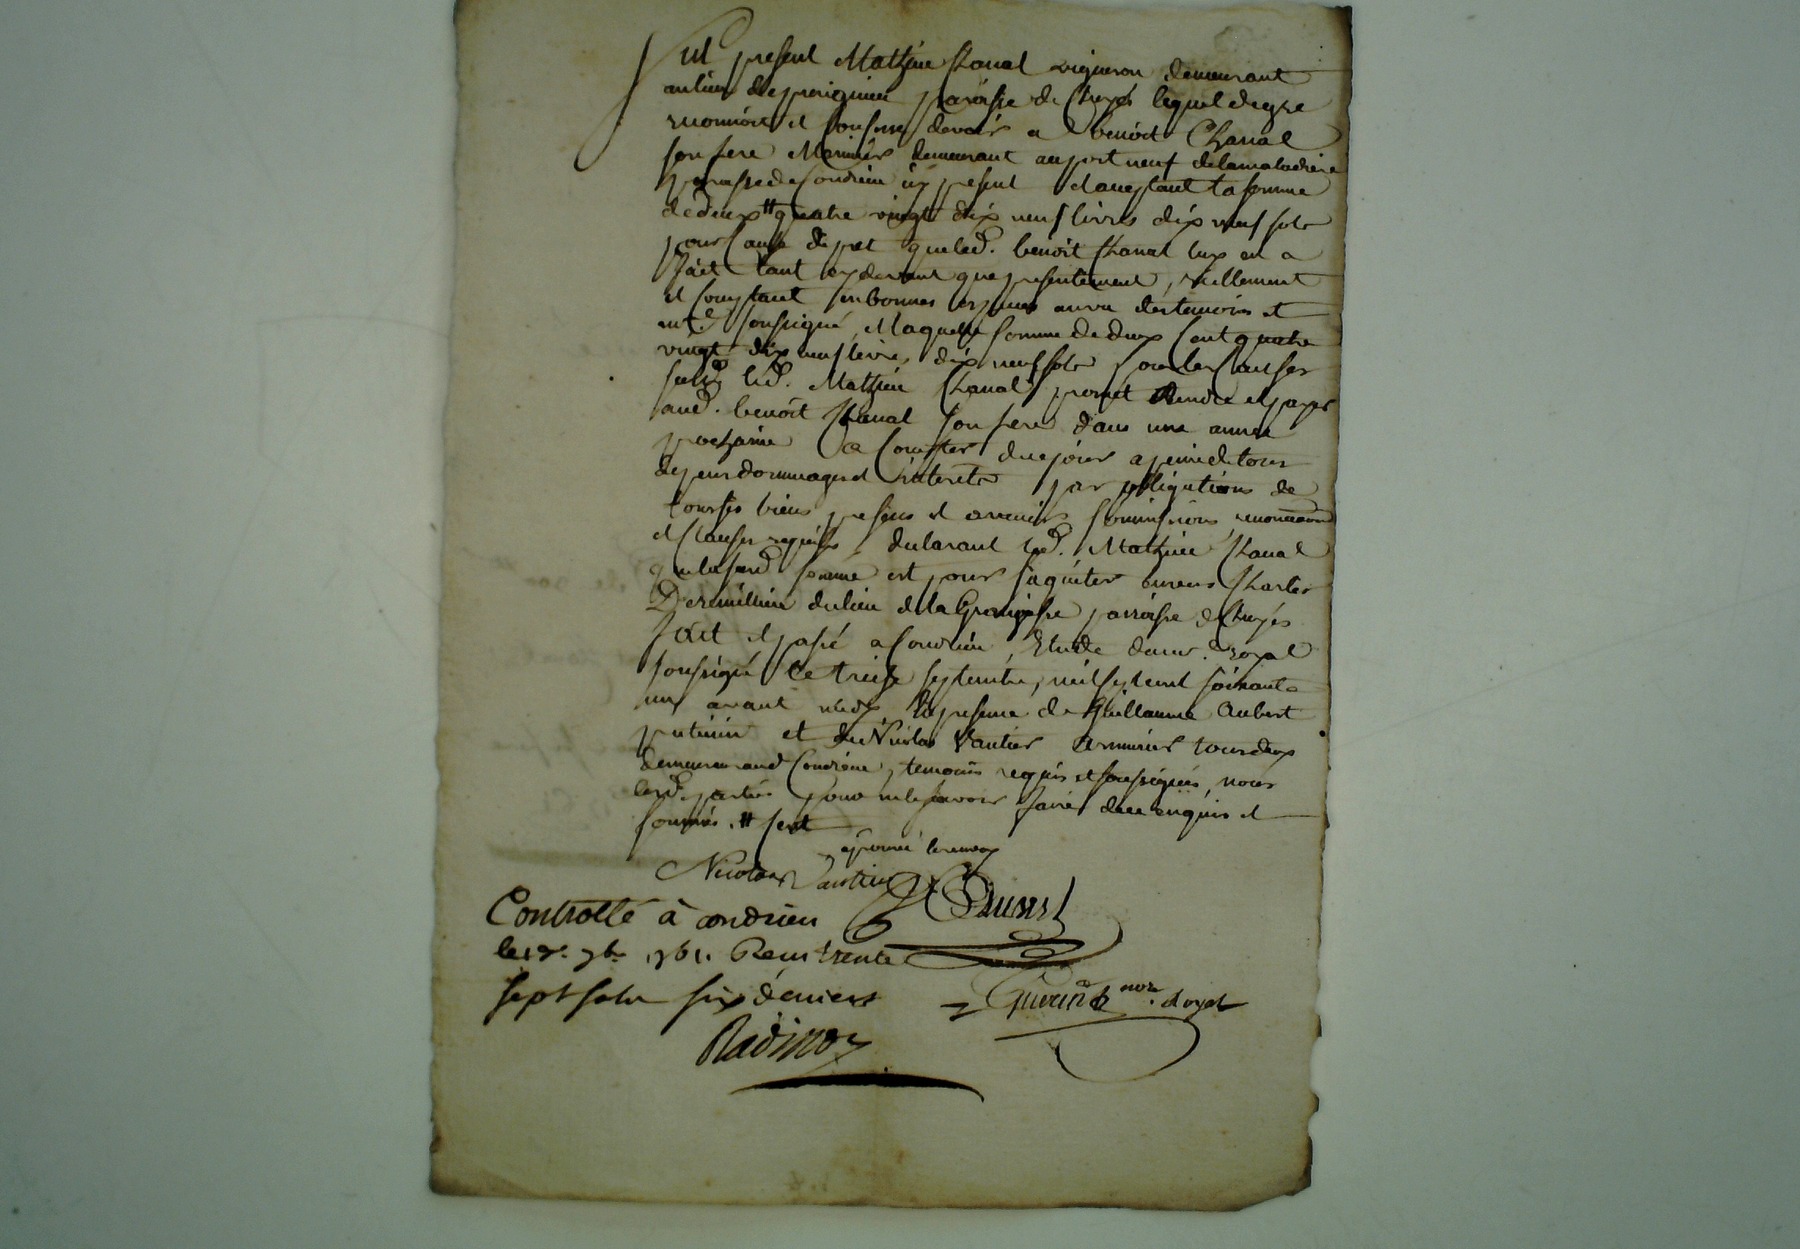 fut present Mathieu Chanal vigneron demeurant
au lieu de perignieu paroisse de Chuyés lequel de gre
reconnoit et confesse devoir a benoit Chanal
son frere Marinier demeurant au port neuf delamaladiere
paroisse de Condrieu icy present et aceptant la somme
de deux # quatre vingt dix neuf livres dix neuf sols
pour Cause de pret que led. benoit Chanal luy en a
fait tant cy devant que presentement, reellement
et Comptant en bonnes espèces au vu des temoins et
not.e soussigné, Laquelle somme de deux Cent quatre
vingt dix neuf livres dix neuf sols pour les Causses
susd. led. Mathieu Chanal promet Rendre et payer
aud. benoit Chanal son frere dans une année
prochaine a Compter de ce jour a peine de tous
depens dommages et interets par obligations de
tous ses biens presens et avenir soumissions, renonciations
et Clauses requises, declarant led. Mathieu Chanal
que lasusd. somme est pour saquiter envers Charles
Deremillieu du lieu de la paroisse de Chuyés
fait et passé a Condrieu, Etude du no.re royal
soussigné Le treise septembre, mil sept cent soixante
un avant midy En presence de Guillaume Aubert
patissier et de Nicolas Vautier armurier tous deux
demeurant aud. Condrieu, temoins requis et soussignés, nous
lesd. parties pour ne le savoir faire de ce enquis et
sommés. # Cent
aprouvé le renvoy
Nicolas Vautier G Aubert
Controllé à Condrieu
le 7bre 1761. Recu trente
sept sols six deniers Guerin nore. royal